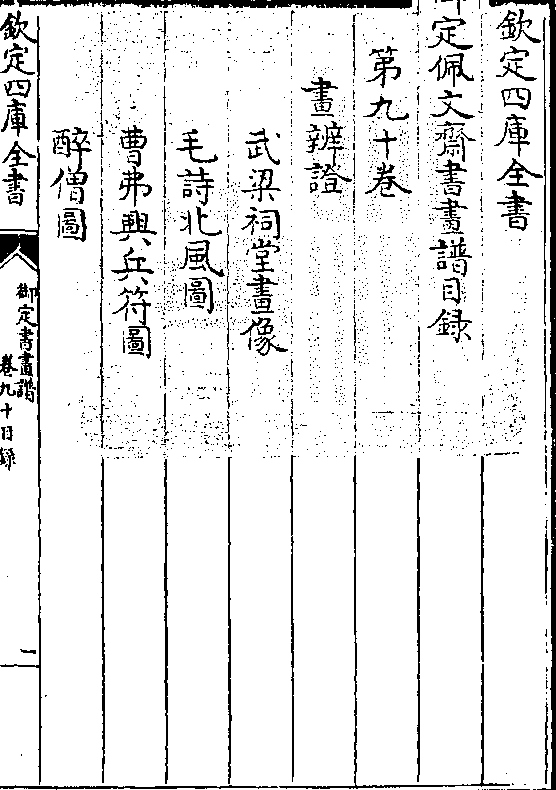 欽定四庫全書
御定佩文齋書畫譜目録
第九十卷
畫辨證
武梁祠堂畫像
毛詩北風圖
曹弗興兵符圖
醉僧圖
欽定四庫全書
御定書畫譜
卷九十目録
一